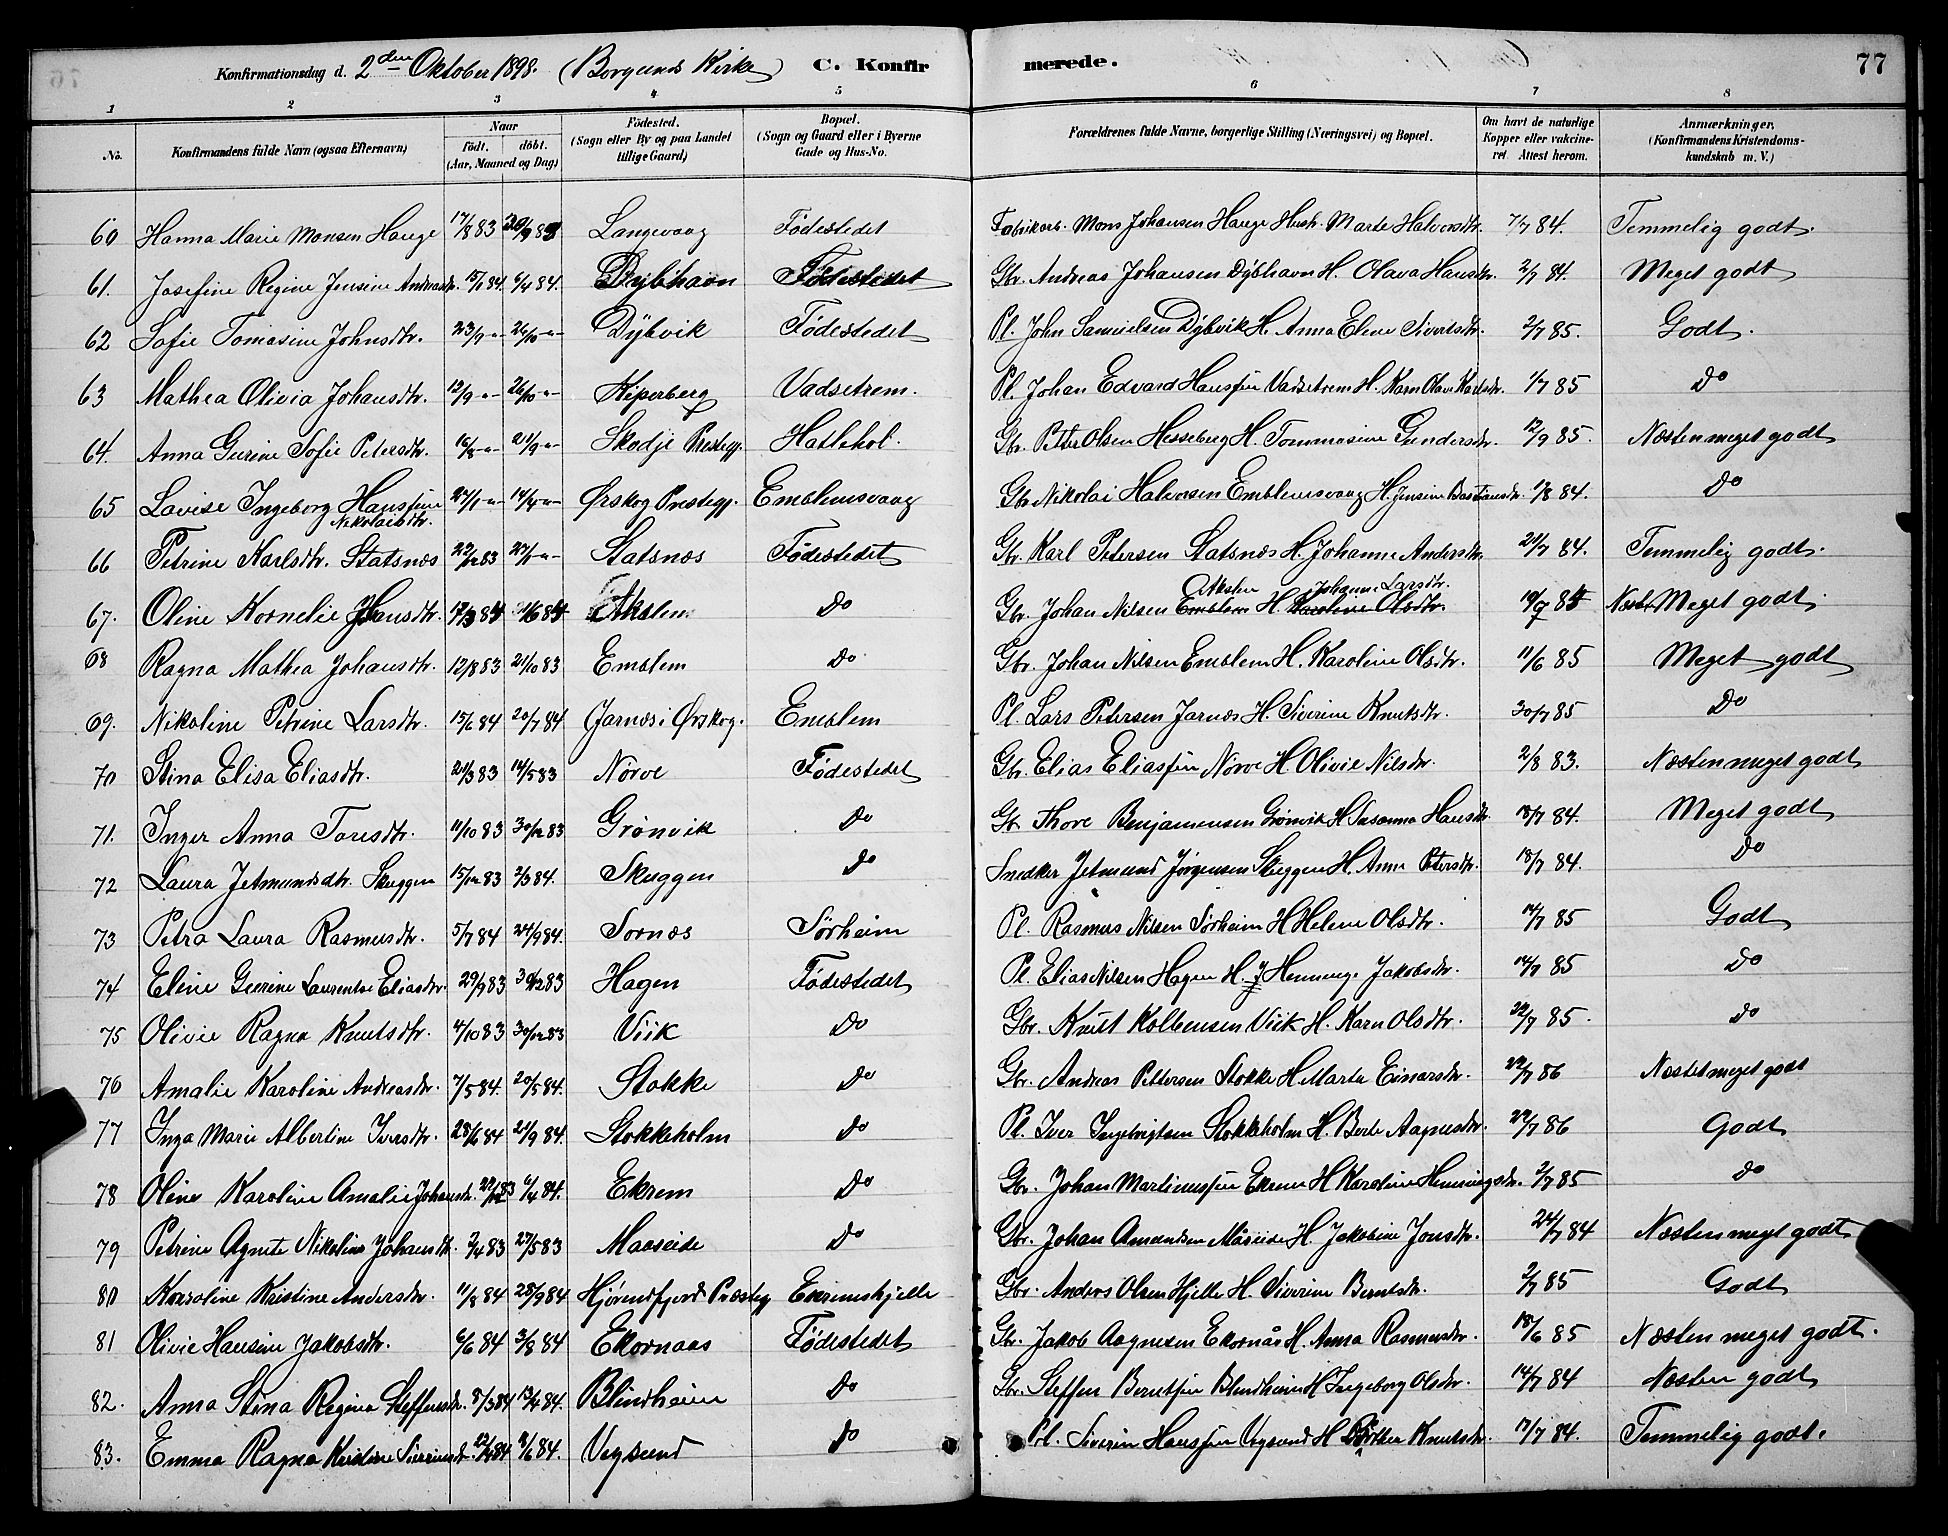 Konfirmationsdag d. 2den Oktober 1898. (Borgund Kirke) C. Konfirmerede. 77
1 2 3 4 5 6 7 8
No. Konfirmandens fulde Navn (ogsaa Efternavn) Naar födt. döbt. (Aar, Maaned og Dag) Födested. (Sogn eller By og paa Landet tillige Gaard) Bopæl. (Sogn og Gaard eller i Byerne Gade og Hus-No. Forældrenes fulde Navne, borgerlige Stilling (Næringsvei) og Bopæl. Om havt de naturlige Kopper eller vakcineret. Attest herom. Anmærkninger. (Konfirmandens Kristendomskundskab m. V.)
60 Hanna Marie Monsen Hauge 17/8 83 30/9 83 Langevaag Fødestedet Fabrikarb. Mons Johansen Hauge Hustr. Marte Halvorsdtr. 7/7 84. Temmelig godt.
61. Josefine Regine Jensine Andreasdtr. 15/1 84. 6/4 84. Dybhavn Fødestedet Gbr. Andreas Johansen Dybhavn H. Olava Hansdtr. 2/7 84. Meget godt
62 Sofie Tomasine Johnsdtr. 23/9 -"- 26/10 -"- Dybvik Fødestedet Pl. John Samuelsen Dybvik H. Anna Eline Sivertsdtr. 2/7 85. Godt.
63 Mathea Olivia Johansdtr. 13/9 -"- 26/10 -"- Kiperberg Vadsetrem. Pl. Johan Edvard Hanssen Vadsetrem H. Karn Olave Karlsdtr. 1/7 85 Do
64. Anna Gurine Sofie Petersdtr. 16/8 -"- 21/9 -"- Skodje Prestegj. Hatlehol. Gbr. Petter Olsen Hesseberg H. Tommasine Gundersdtr. 13/9 85. Næsten meget godt
65 Lovise Ingeborg Hanssine Nikolaisdtr. 27/1 -"- 14/4 -"- Ørskog Prestegj. Emblemsvaag Gbr. Nikolai Halvorsen Emblemsvaag H. Jensine Bastiansdtr. 1/8 84. Do
66 Petrine Karlsdtr. Statsnæs 22/12 83 27/1 -"- Statsnæs Fødestedet Gbr. Karl Petersen Statsnæs H. Johanne Andersdtr. 21/7 84. Temmelig godt.
67. Oline Kornelie Johansdtr. 17/3 84 1/6 84 Akslen Do Gbr. Johan Nilsen Emblem Akslen H. Karoline Olsdtr. Johanne Larsdtr. 19/7 85 Næst. Meget godt.
68 Ragna Mathea Johansdtr. 12/8 83 21/10 83 Emblem Do Gbr. Johan Nilsen Emblem H. Karoline Olsdtr. 11/6 85 Meget godt
69. Nikoline Petrine Larsdtr. 15/6 84 20/7 84 Jarnæs i Ørskog. Emblem Pl. Lars Petersen Jarnæs H. Siverine Knutsdtr. 30/7 85 Do
70 Stina Elisa Eliasdtr. 21/3 83 14/5 83 Nørve Fødestedet Gbr. Elias Eliassen Nørve H Olivie Nilsdtr. 2/8 83. Næsten meget godt
71. Inger Anna Toresdtr. 11/10 83 30/12 83 Grønvik Do Gbr Thore Benjaminsen Grønvik H Susanna Hansdtr. 18/7 84. Meget godt
72 Laura Jetmundsdtr. Skuggen 15/12 83 2/3 84. Skuggen Do Snedker Jetmund Jørgensen Skuggen H. Anne Petersdtr. 18/7 84. Do
73 Petra Laura Rasmusdtr. 5/7 84 21/9 84. Sornæs Sørheim Pl. Rasmus Nilsen Sørheim H Helene Olsdtr. 14/7 85 Godt
74 Eline Gurine Laurentse Eliasdtr. 29/9 83 30/12 83 Hagen Fødestedet Pl. Elias Nilsen Hagen H. J Henninge Jakobsdtr. 14/7 85 Do
75 Olivie Ragna Knutsdtr. 4/10 83 30/12 83 Viik Do Gbr. Knut Kolbensen Viik H. Karn Olsdtr. 22/7 85. Do
76 Amalie Karoline Andreasdtr. 7/5 84. 20/5 84. Stokke Do Gbr. Andreas Pettersen Stokke H Marte Einarsdtr. 22/7 86 Næstet meget godt
77 Inga Marie Albertine Iversdtr. 28/6 84 21/9 84. Stokkeholm Do Pl. Iver Ingebrigtsen Stokkeholm H. Berte Aagesdtr. 22/7 86 Godt
78 Oline Karoline Amalie Johansdtr. 22/12 83 6/4 84. Ekrem Do Gbr. Johan Martinussen Ekrem H Karoline Henningsdtr. 2/7 85 Do
79 Petrine Agnete Nikoline Johansdtr. 2/4 83 27/5 83 Maaseide Do Gbr. Johan Amundsen Måseide H. Jakobine Jonsdtr. 24/7 84 Næsten meget godt
80 Karoline Kristine Andersdtr. 11/8 84 28/9 84 Hjørendfjord Præsteg Ekremshjelle Gbr. Anders Olsen Hjelle H. Siverine Berntsdtr. 2/7 85 Godt
81 Olivie Hansine Jakobsdtr. 6/6 84 3/8 84 Ekornaas Fødestedet Gbr. Jakob Aagesen Ekornås H. Anna Rasmusdtr. 18/6 85 Næsten meget godt.
82. Anna Stina Regina Steffensdtr. 8/3 84 13/4 84. Blindheim Do Gbr. Steffen Berntsen Blindheim H Ingeborg Olsdtr. 14/7 84 Næsten godt
83. Emma Ragna Kristine Siverinsdtr. 12/4 84 1/6 84. Vegsund Do Pl. Siverin Hanssen Vegsund H Knutsdtr. 17/7 84. Temmelig godt.